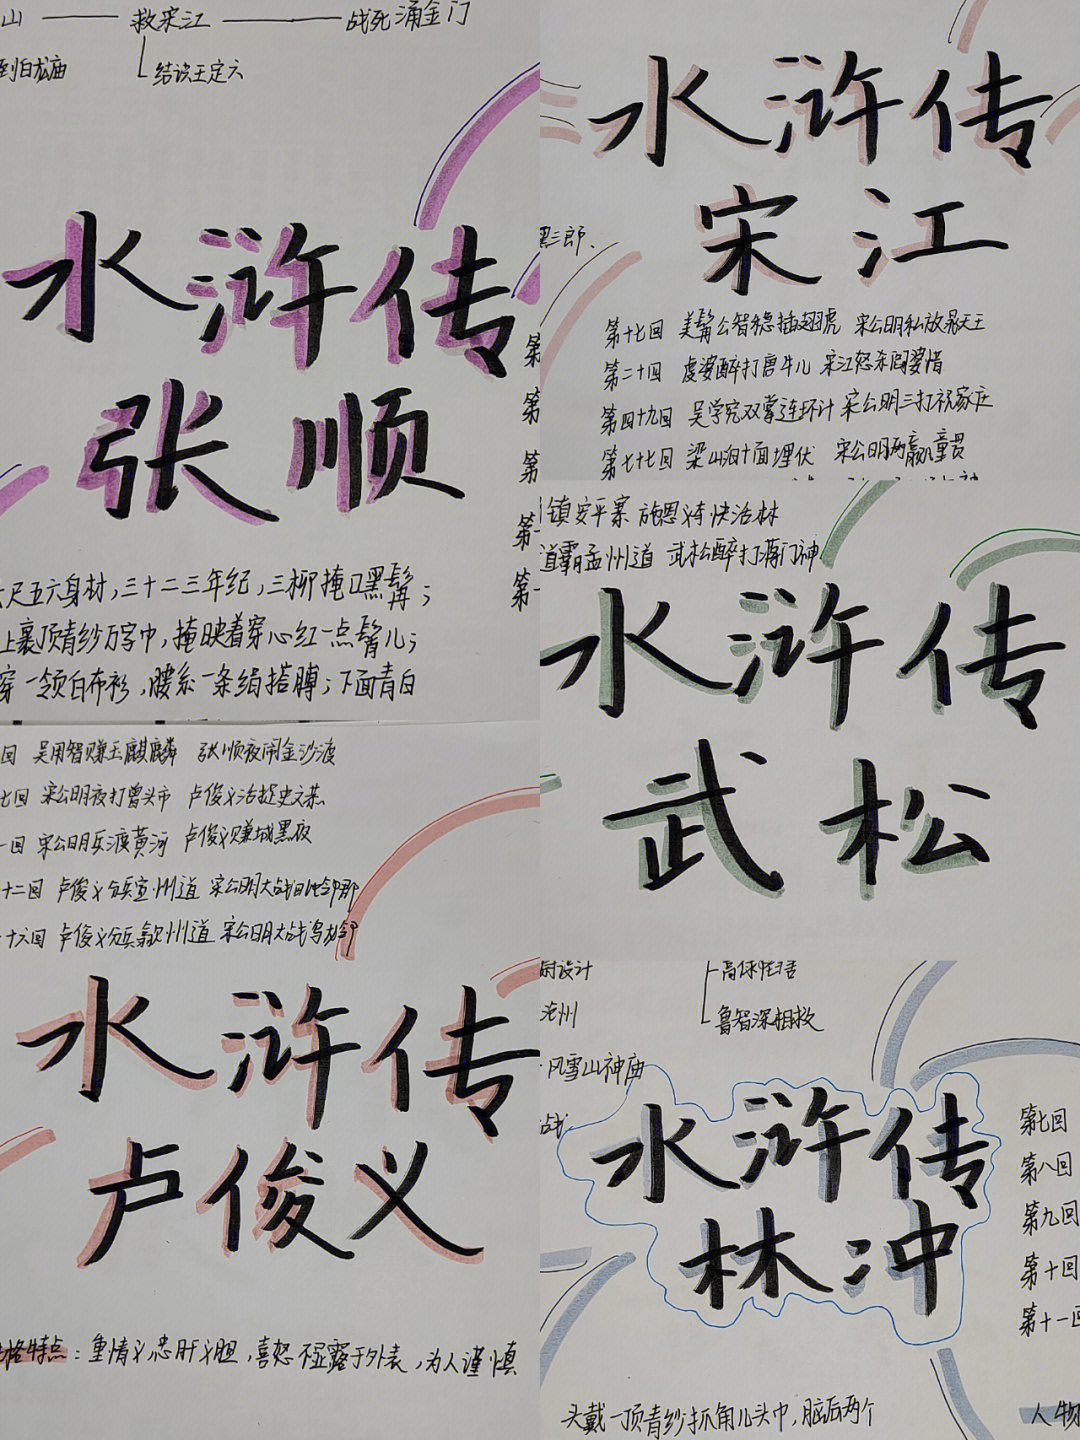 山 救宋江 战死涌金门
到白龙庙 结识王定六
水浒传
张顺
第
第
第
第
第
六尺五六身材,三十二三年纪,三柳掩口黑髯;
上裹顶青纱万字巾,掩映着穿心红一点髾儿;
穿一领白布衫,腰系一条绢搭膊;下面青白
水浒传
宋江
黑三郎、
第十七回 美髯公智稳插翅虎 宋公明私放晁天王
第二十回 虔婆醉打唐牛儿 宋江怒杀阎婆惜
第四十九回 吴学究双掌连环计 宋公明三打祝家庄
第七十七回 梁山泊十面埋伏 宋公明两赢童贯
镇安平寨 施恩义夺快活林
道霸孟州道 武松醉打蒋门神
水浒传
武松
回 吴用智赚玉麒麟 张顺夜闹金沙渡
七回 宋公明夜打曾头市 卢俊义活捉史文恭
一回 宋公明兵渡黄河 卢俊义赚城黑夜
十二回 卢俊义分兵宣州道 宋公明大战毗邻郡
十六回 卢俊义分兵歙州道 宋公明大战乌龙岭
水浒传
卢俊义
格特点:重情义,忠肝义胆,喜怒不显露于外表,为人谨慎
尉设计 高俅陷害
沧州 鲁智深相救
风雪山神庙
战
水浒传
林冲
第七回
第八回
第九回
第十回
第十一回
头戴一顶青纱抓角儿头巾,脑后两个
人物